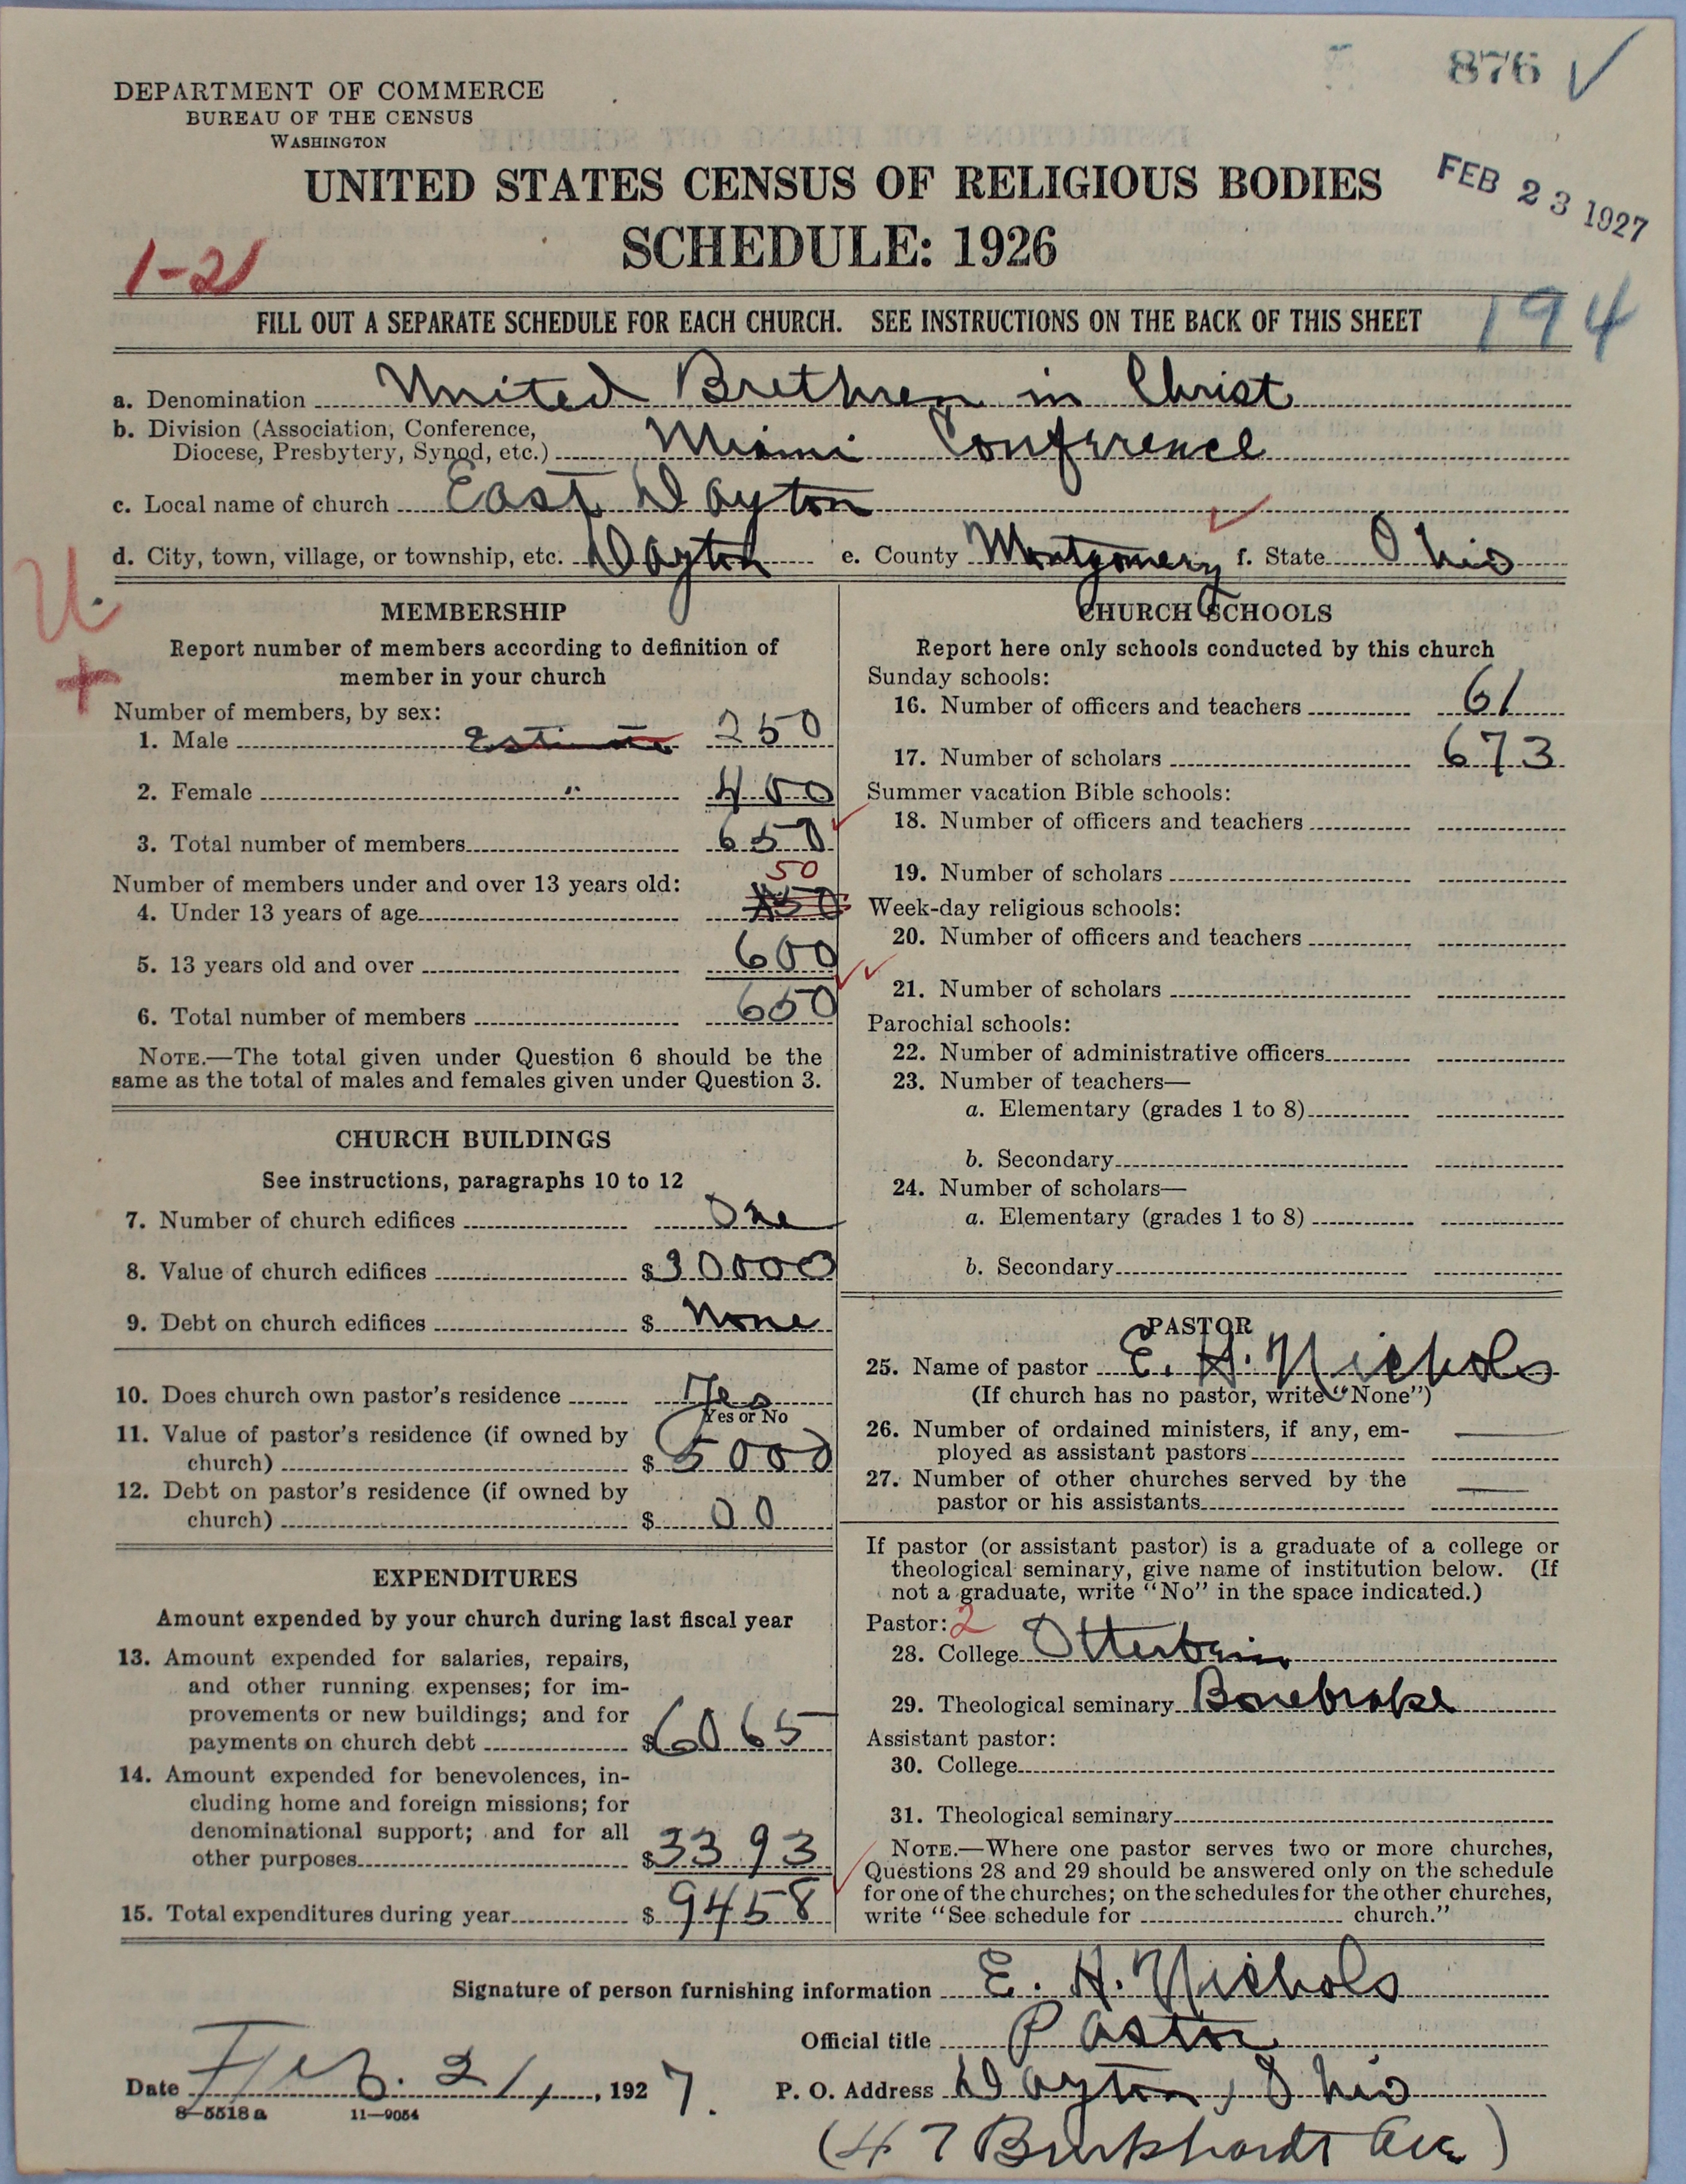 876 ✓
DEPARTMENT OF COMMERCE
BUREAU OF THE CENSUS
WASHINGTON
UNITED STATES CENSUS OF RELIGIOUS BODIES
FEB 23 1927
SCHEDULE: 1926
1-21
194
FILL OUT A SEPARATE SCHEDULE FOR EACH CHURCH. SEE INSTRUCTIONS ON THE BACK OF THIS SHEET
a. Denomination United Brethren in Christ
b. Division (Association, Conference,
Diocese, Presbytery, Synod, etc.) Miami Conference
c. Local name of church East Dayton
d. City, town, village, or township, etc. Dayton e. County Montgomery f. State Ohio
U.
+
MEMBERSHIP
Report number of members according to definition of
member in your church
Number of members, by sex:
1. Male Estimate 250
2. Female " 400
3. Total number of members 650
Number of members under and over 13 years old:
50
4. Under 13 years of age
5. 13 years old and over 600
6. Total number of members 650
NOTE.—The total given under Question 6 should be the
same as the total of males and females given under Question 3.
CHURCH BUILDINGS
See instructions, paragraphs 10 to 12
7. Number of church edifices One
8. Value of church edifices $30000
9. Debt on church edifices $ None
10. Does church own pastor's residence Yes
Yes or No
11. Value of pastor's residence (if owned by
church) $ 5000
12. Debt on pastor's residence (if owned by
church) $ 00
EXPENDITURES
Amount expended by your church during last fiscal year
13. Amount expended for salaries, repairs,
and other running expenses; for im-
provements or new buildings; and for
payments on church debt $6065
14. Amount expended for benevolences, in-
cluding home and foreign missions; for
denominational support; and for all
other purposes $3393
15. Total expenditures during year $ 9458
CHURCH SCHOOLS
Report here only schools conducted by this church
Sunday schools:
16. Number of officers and teachers 61
17. Number of scholars 673
Summer vacation Bible schools:
18. Number of officers and teachers
19. Number of scholars
Week-day religious schools:
20. Number of officers and teachers
21. Number of scholars
Parochial schools:
22. Number of administrative officers
23. Number of teachers—
a. Elementary (grades 1 to 8)
b. Secondary
24. Number of scholars—
a. Elementary (grades 1 to 8)
b. Secondary
PASTOR
25. Name of pastor E. H. Nichols
(If church has no pastor, write "None")
26. Number of ordained ministers, if any, em-
ployed as assistant pastors
27. Number of other churches served by the
pastor or his assistants
If pastor (or assistant pastor) is a graduate of a college or
theological seminary, give name of institution below. (If
not a graduate, write "No" in the space indicated.)
Pastor: 2
28. College Otterbein
29. Theological seminary Bonebrake
Assistant pastor:
30. College
31. Theological seminary
NOTE.—Where one pastor serves two or more churches,
Questions 28 and 29 should be answered only on the schedule
for one of the churches; on the schedules for the other churches,
write "See schedule for church."
Signature of person furnishing information E. H. Nichols
Official title Pastor
Date Feb. 21, 1927. P. O. Address Dayton, Ohio
8—5518a 11—9054
(47 Burkhardt Ave)